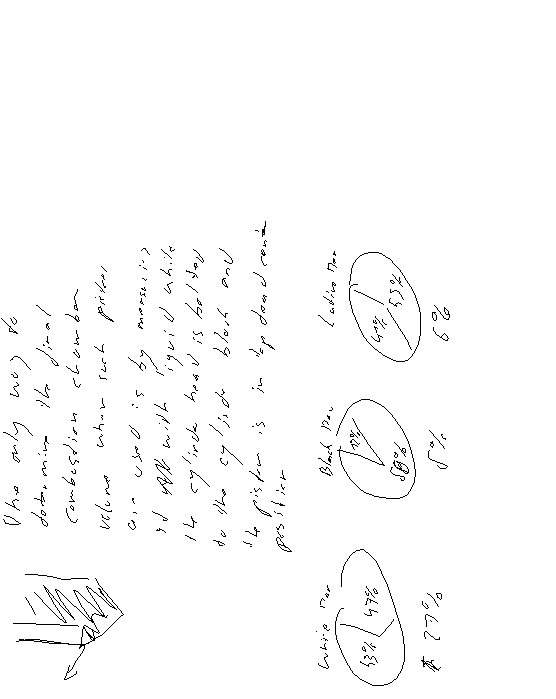 The only way to
determine the final
combustion chamber
volume when such pistons
are used is by measuring
it with liquid while
the cylinder head is bolted
to the cylinder block and
the piston is in top dead
position
White Men
43% 47%
27%
Black Men
Latino Men
53%
6%